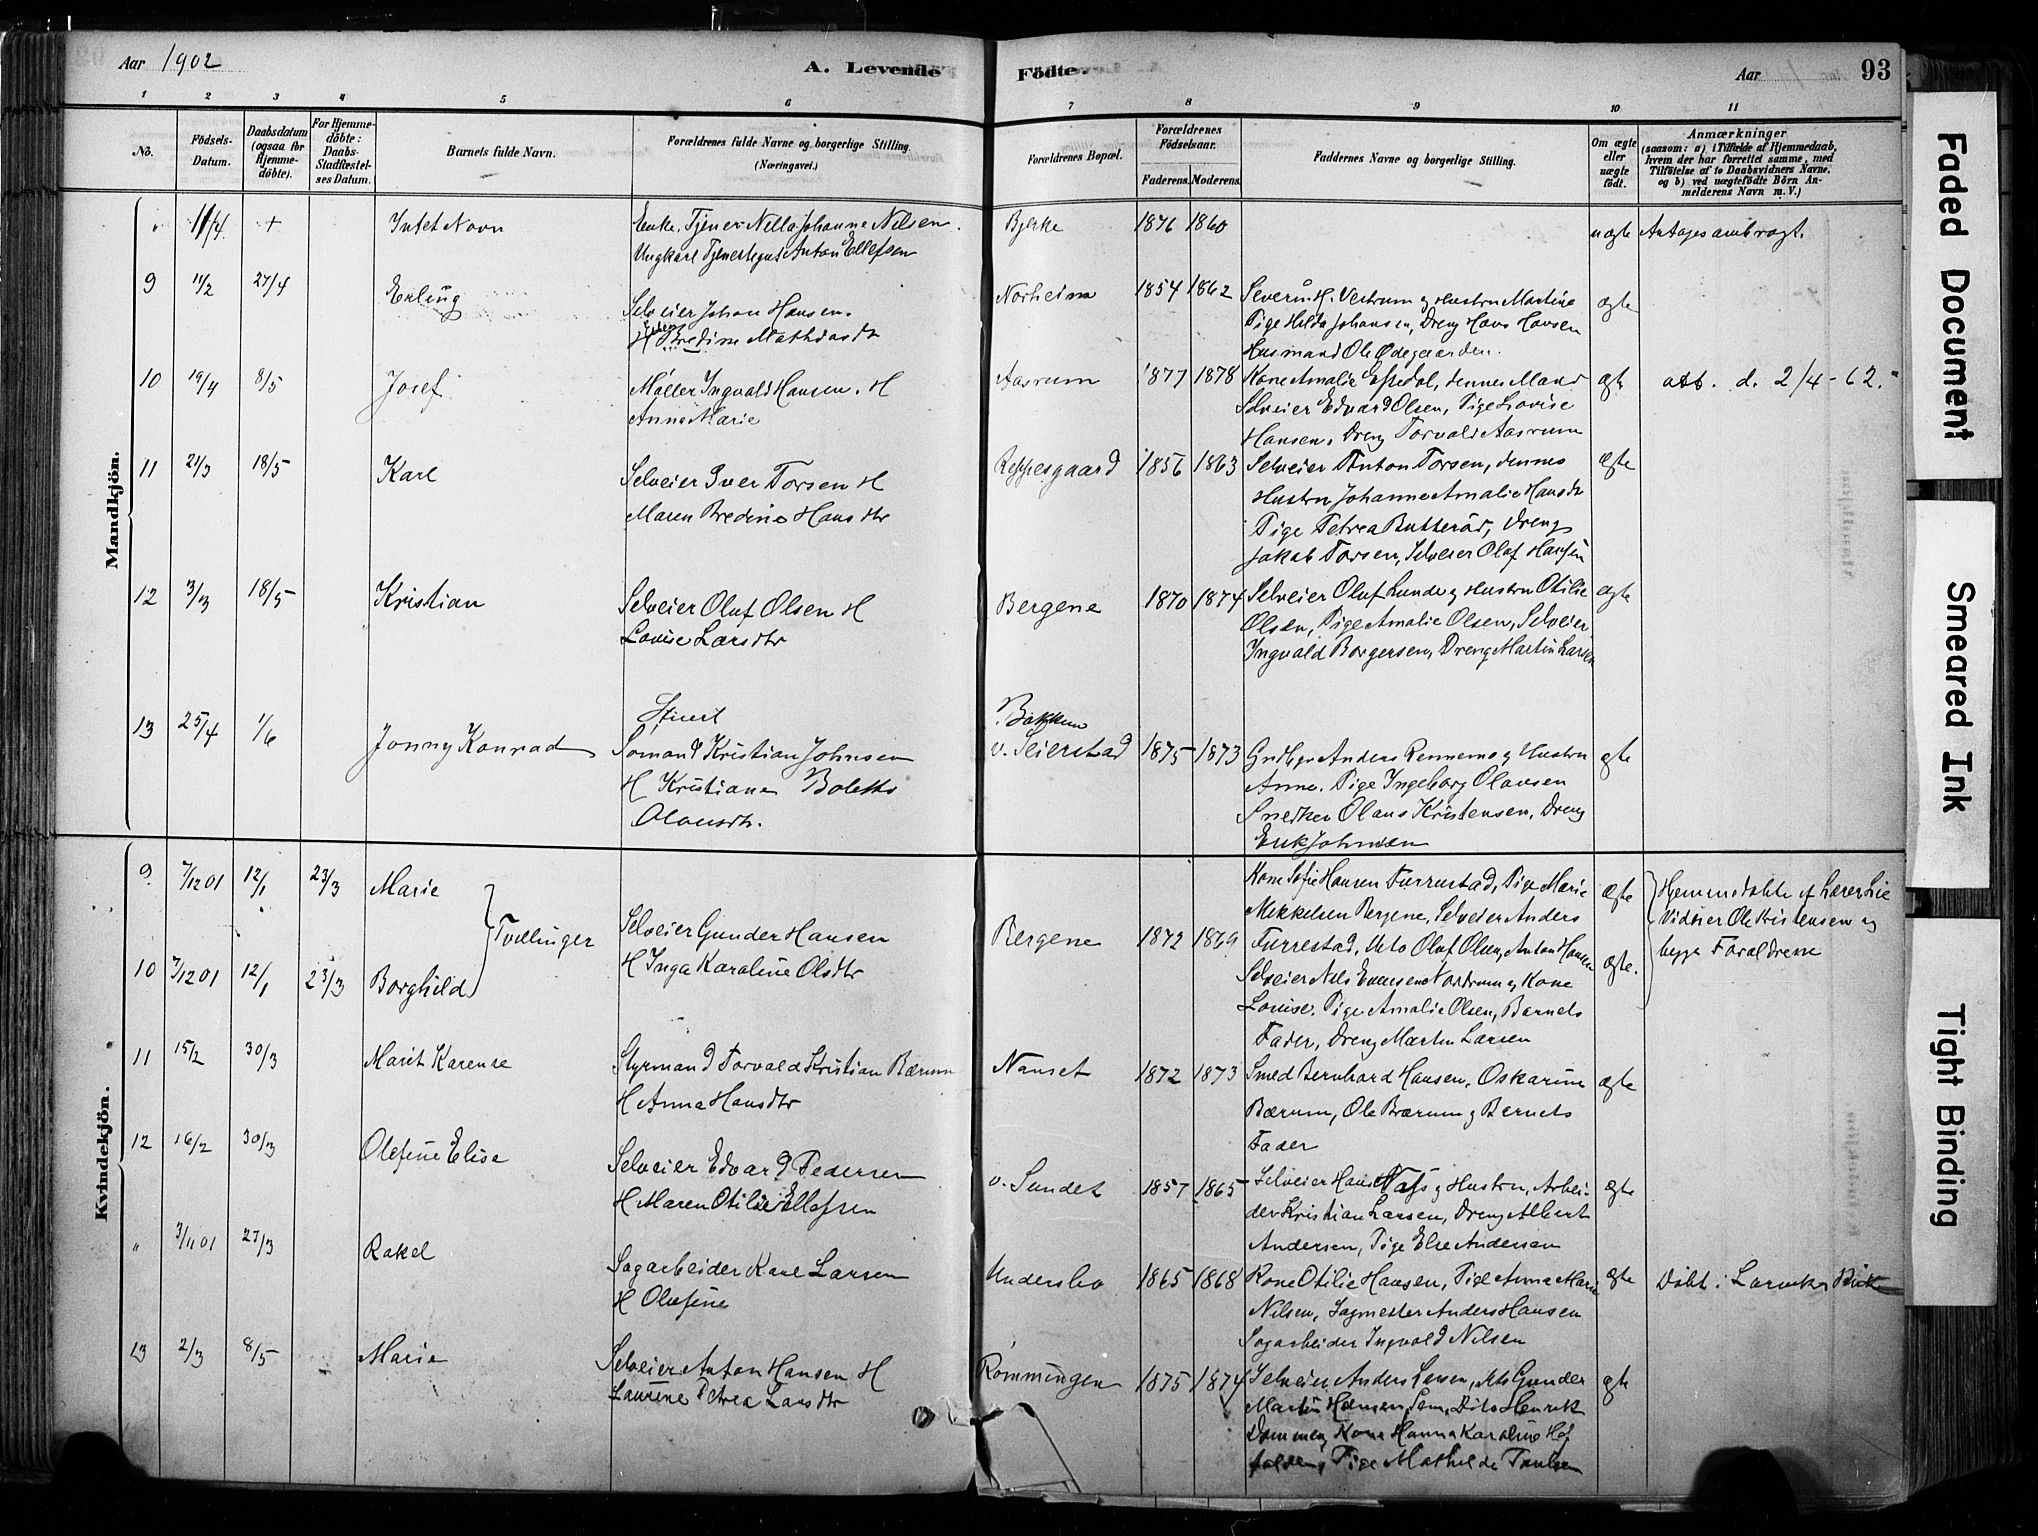 Aar 1902
A. Levende
Födte.
Aar
93
1 2 3 4 5 6 7 8 9 10 11
No.
Födsels-Datum.
Daabsdatum (ogsaa for Hjemmedöbte).
For Hjemmedöbte: Daabs-Stadfæstelses Datum.
Barnets fulde Navn.
Forældrenes fulde Navne og borgerlige Stilling.
(Næringsvei.)
Forældrenes Bopæl.
Forældrenes Födselsaar.
Faderens. Moderens.
Faddernes Navne og borgerlige Stilling.
Om ægte eller uægte født.
Anmærkninger
(saasom: a) i Tilfælde af Hjemmedaab, hvem der har forrettet samme, med Tilföielse af to Daabsvidners Navne, og b) ved uægtefödte Börn Anmelderens Navn m. V.)
Mandkjön.
" 11/4 + Intet Navn
Enke, Tjener Nella Johanne Nilsen.
Ungkarl Anton Ellefsen
Bjerke 1876 1860 uægte
9 11/2 27/4 Erling
Selveier Johan Hansen.
H Bredine Mathiasdtr
Norheim 1854 1862
Severin H. Vestrum og Hustru Martine
Pige Hilda Johansen, Dreng Hans Hansen
Husmand Ole Ødegaarden.
ægte
10 19/4 8/5 Josef
Møller Ingvald Hansen. H
Anna Marie
Aasrum 1877 1878
Kone Amalie Espedal, dennes Mand
Selveier Edvard Olsen, Pige Lovise
Hansen, Dreng Torvald Aasrum
ægte
att. d. 2/4-62.
11 21/3 18/5 Karl
Selveier Iver Torsen H
Maren Bredine Hansdtr
Reppesgaard 1856 1863
Selveier Anton Torsen, dennes
Hustru Johanne Amalie Hansdtr
Pige Petrea Butterød, Dreng
Jakob Torsen, Selveier Olaf Hansen
ægte
12 3/3 18/5 Kristian
Selveier Oluf Olsen H
Lovise Larsdtr
Bergene 1870 1874
Selveier Oluf Lunde og Hustru Otilie
Olsen, Pige Amalie Olsen, Selveier
Ingvald Borgersen, Dreng Martin Larsen
ægte
13 25/4 1/6 Jonny Konrad
Stuert
Sømand Kristian Johnsen
H Kristiane Bolette
Olausdtr.
Bakken
v. Seierstad 1875 1873
Grdbgr Anders Rennemo og Hustru
Anne. Pige Ingeborg Olausen
Snedker Olaus Kristensen, Dreng
Erik Johnsen
ægte
Kvindekjön.
9 7/12 01 12/1 23/3 Marie
10 7/12 01 12/1 23/3 Borghild
Tvillinger
Selveier Gunder Hansen
H Inga Karoline Olsdtr
Bergene 1872 1869
Kone Sofie Hansen Furrestad, Pige Marie
Mekkelsen Bergene, Selveier Anders
Furrestad, dito Oluf Olsen, Anton Hansen
Selveier Nils Evensen Nordrum og Kone
Lovise. Pige Amalie Olsen, Barnets
Fader, Dreng Martin Larsen
ægte
ægte.
Hjemmedøbte af Lærer Lie
Vidner Ole Kristensen og
begge Forældrene
11 15/2 30/3 Marit Karense
Styrmand Torvald Kristian Bærum
H Anna Hansdtr
Nanset 1872 1873
Smed Bernhard Hansen, Oskarine
Bærum, Ole Bærum og Barnets
Fader
ægte
12 16/2 30/3 Olefine Elise
Selveier Edvard Pedersen
H Maren Otilie Ellefsen
v. Sundet 1857 1865
Selveier Hans Næss og Hustru, Arbei-
der Kristian Larsen, Dreng Albert
Andersen, Pige Else Andersen
ægte
" 3/11 01 27/3 Rakel
Sagarbeider Karl Larsen
H Olefine
Undersbo 1865 1868
Kone Otilie Hansen, Pige Anna Marie
Nilsen, Sagmester Anders Hansen
Sagarbeider Ingvald Nilsen
ægte
Döbt i Larviks Kirke
13 2/3 8/5 Marie
Selveier Anton Hansen H
Laurine Petrea Larsdtr
Rømmingen 1875 1874
Selveier Anders Larsen, dito Gunder
Martin Hansen Sem, Dito Henrik
Dammen, Kone Hanna Karoline
Pige Mathilde Paulsen
ægte
Faded Document
Smeared Ink
Tight Binding